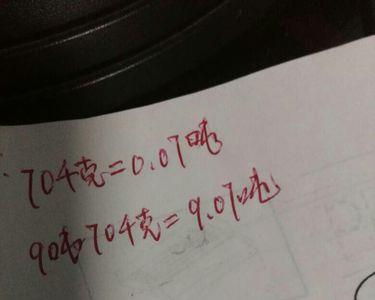 704克=0.07吨
90吨704克=9.07吨